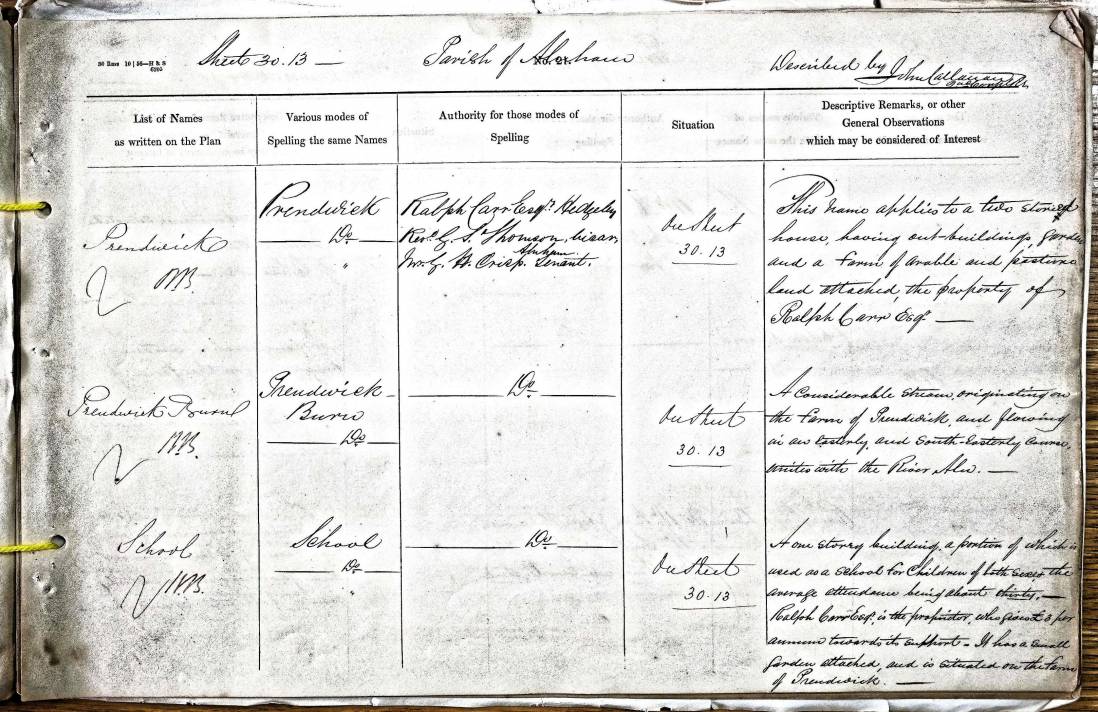 30 Rows 10 | 56—H & S
Sheet 30.13 — Parish of Alnham Described by John Callanan
List of Names
as written on the Plan
Various modes of
Spelling the same Names
Authority for those modes of
Spelling
Situation
Descriptive Remarks, or other
General Observations
which may be considered of Interest
Prendwick
Prendwick
Do
"
Ralph Carr Esqr. Hedgeley
Revd. G. S. Thomson, vicar,
Alnham
Mr. G. H. Crisp. Tenant.
On Sheet
30.13
This name applies to a two storied
house, having out-buildings, garden
and a farm of arable and pasture
land attached, the property of
Ralph Carr Esqr. —
Prendwick Burn
Prendwick
Burn
Do
Do
On Sheet
30.13
A considerable stream, originating on
the Farm of Prendwick, and flowing
in an Easterly, and South-Easterly course,
unites with the River Aln. —
School
School
Do
"
Do
On Sheet
30.13
A one storey building, a portion of which is
used as a School for Children of both sexes the
average attendance being about thirty. —
Ralph Carr Esqr. is the proprietor, who gives £3 per
annum towards its support. - It has a small
garden attached, and is situated on the farm
of Prendwick. —